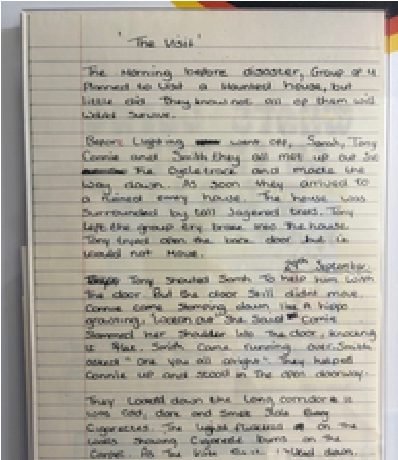 'The Visit'
The Morning before disaster, Group of 4
Planned to visit a Haunted house, but
little did they know not all of them will
survive.
Before Lighting went off, Sarah, Tony
Connie and Smith they all met up out
The Cycletrack and made the
way down. As soon they arrived to
a ruined house. The house was
surrounded by tall trees. Tony
left the group try break into the house.
Tony tryed open the back door but it
would not Move.
29th September.
Tony shouted Sarah To help him with
The door. But the door still didnt move
Connie came stomping down like A hippo
growling, "Lookout" She Connie
Slammed her shoulder into the door, knocking
it Smith Came running over. Smith
asked "are you all alright". They helped
Connie up and stood in the open doorway.
They Looked down the Long corridor it
was cold, dark and smelt Stale
Cigarettes. The on the
walls showing Cigarette burns on the
Carpet. As The down.